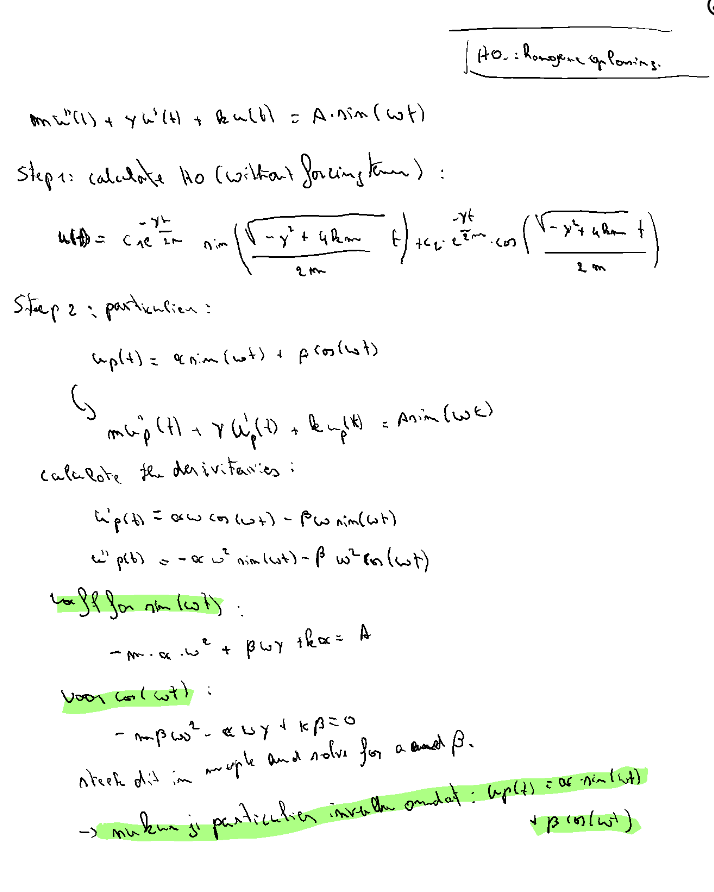 HO.: homogene oplossing.
mu''(t) + γu'(t) + ku(t) = A·sin(ωt)
Step 1: calculate HO (without forcing term) :
u(t) = c₁e^(-γt/2m) sin(√(-γ²+4km)/2m t) + c₂·e^(-γt/2m)·cos(√(-γ²+4km) t/2m)
Step 2 : particulier :
up(t) = α sin(ωt) + β cos(ωt)
mu''p(t) + γu'p(t) + kup(t) = A sin(ωt)
calculate the derivitavies :
u'p(t) = αω cos(ωt) - βω sin(ωt)
u''p(t) = -αω² sin(ωt) - β ω² cos(ωt)
coeff for sin(ωt) :
-m·α·ω² + βωγ + kα = A
voor cos(ωt) :
-mβω² - αωγ + kβ = 0
steek dit in maple and solve for a and β.
→ nu kun je particulier invullen omdat : up(t) = α sin(ωt)
+ β cos(ωt)